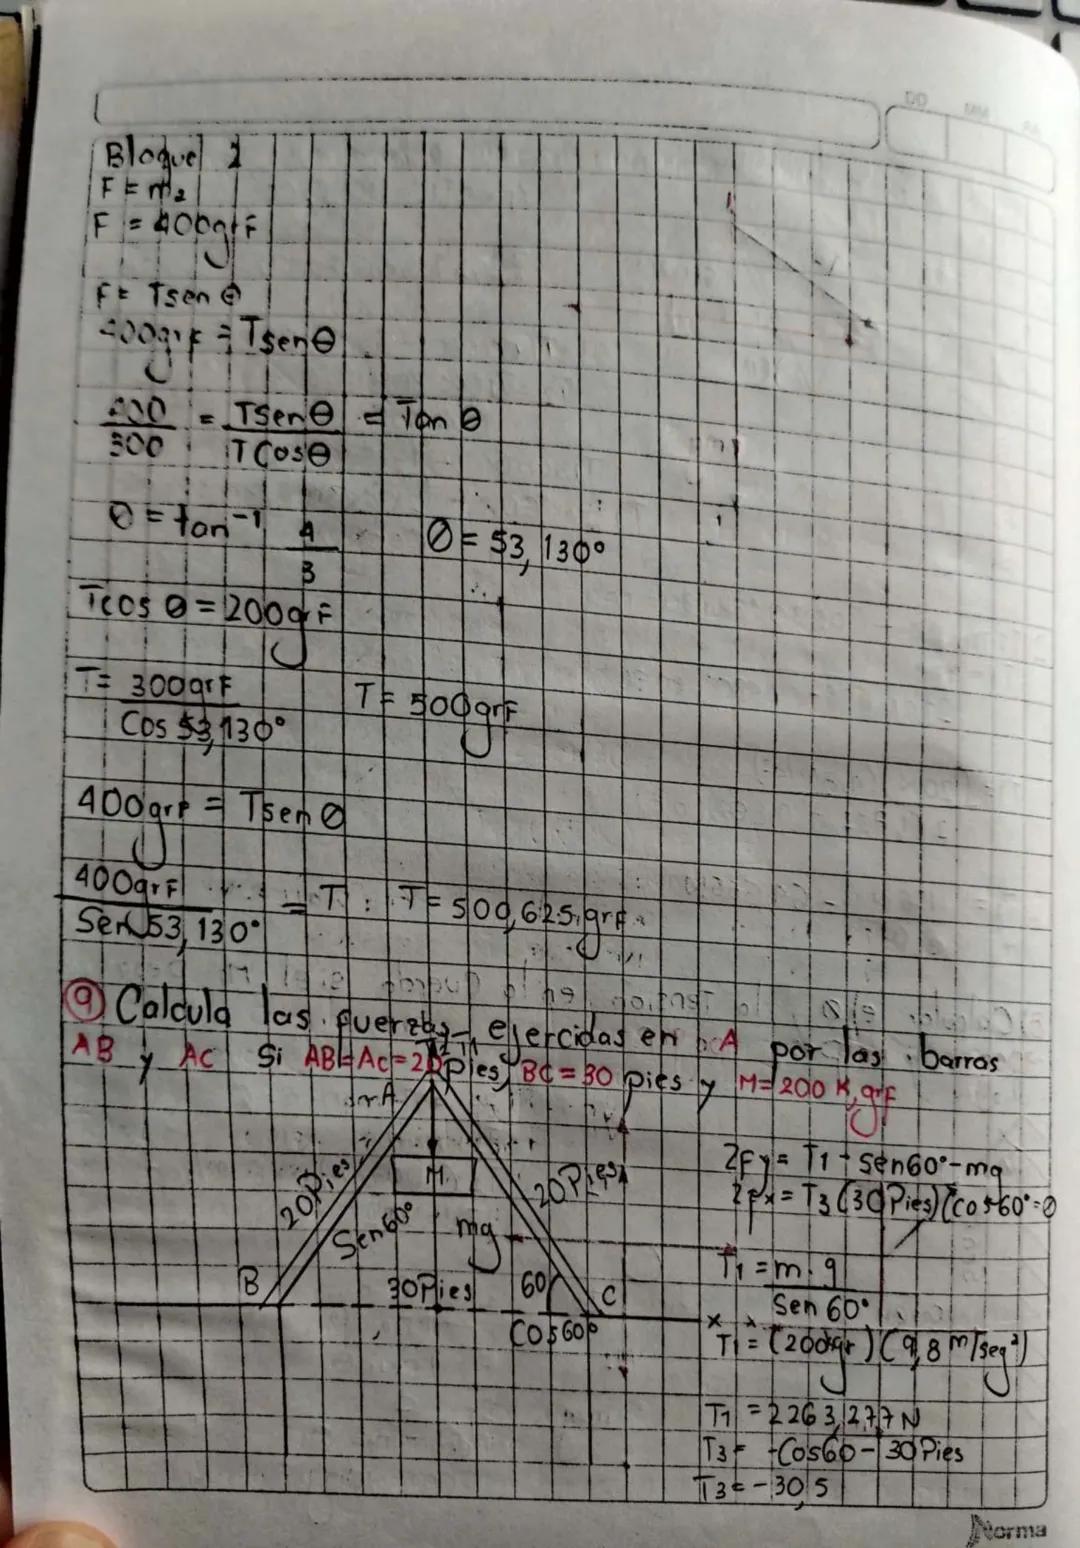 DD MM AA
Bloque 2
F = m2
F = 400grF
F = Tsen θ
400grF = Tsenθ
400/300 = Tsenθ/TCosθ = Tan θ
θ = tan⁻¹ 4/3 θ = 53,130°
Tcos θ = 200grF
T = 300grF/Cos 53,130° T = 500grF
400grF = Tsen θ
400grF/Sen 53,130° = T : T = 500,625 grF
9 Calcula las fuerzas ejercidas en A por las barras
AB y AC Si AB=AC=20 pies, BC=30 pies y M=200 K,grF
A
20Pies
M
20Pies
Sen60°
mg
B
30Pies
60
C
Cos60°
Σfy = T1 - sen60°-mg
Σfx = T3 (30Pies)(cos60°=0
T1 = m.g/Sen 60°
T1 = (200gr)(9,8 m/seg²)
T1 = 2263,277N
T3 = -Cos60-30Pies
T3 = -30,5
Norma